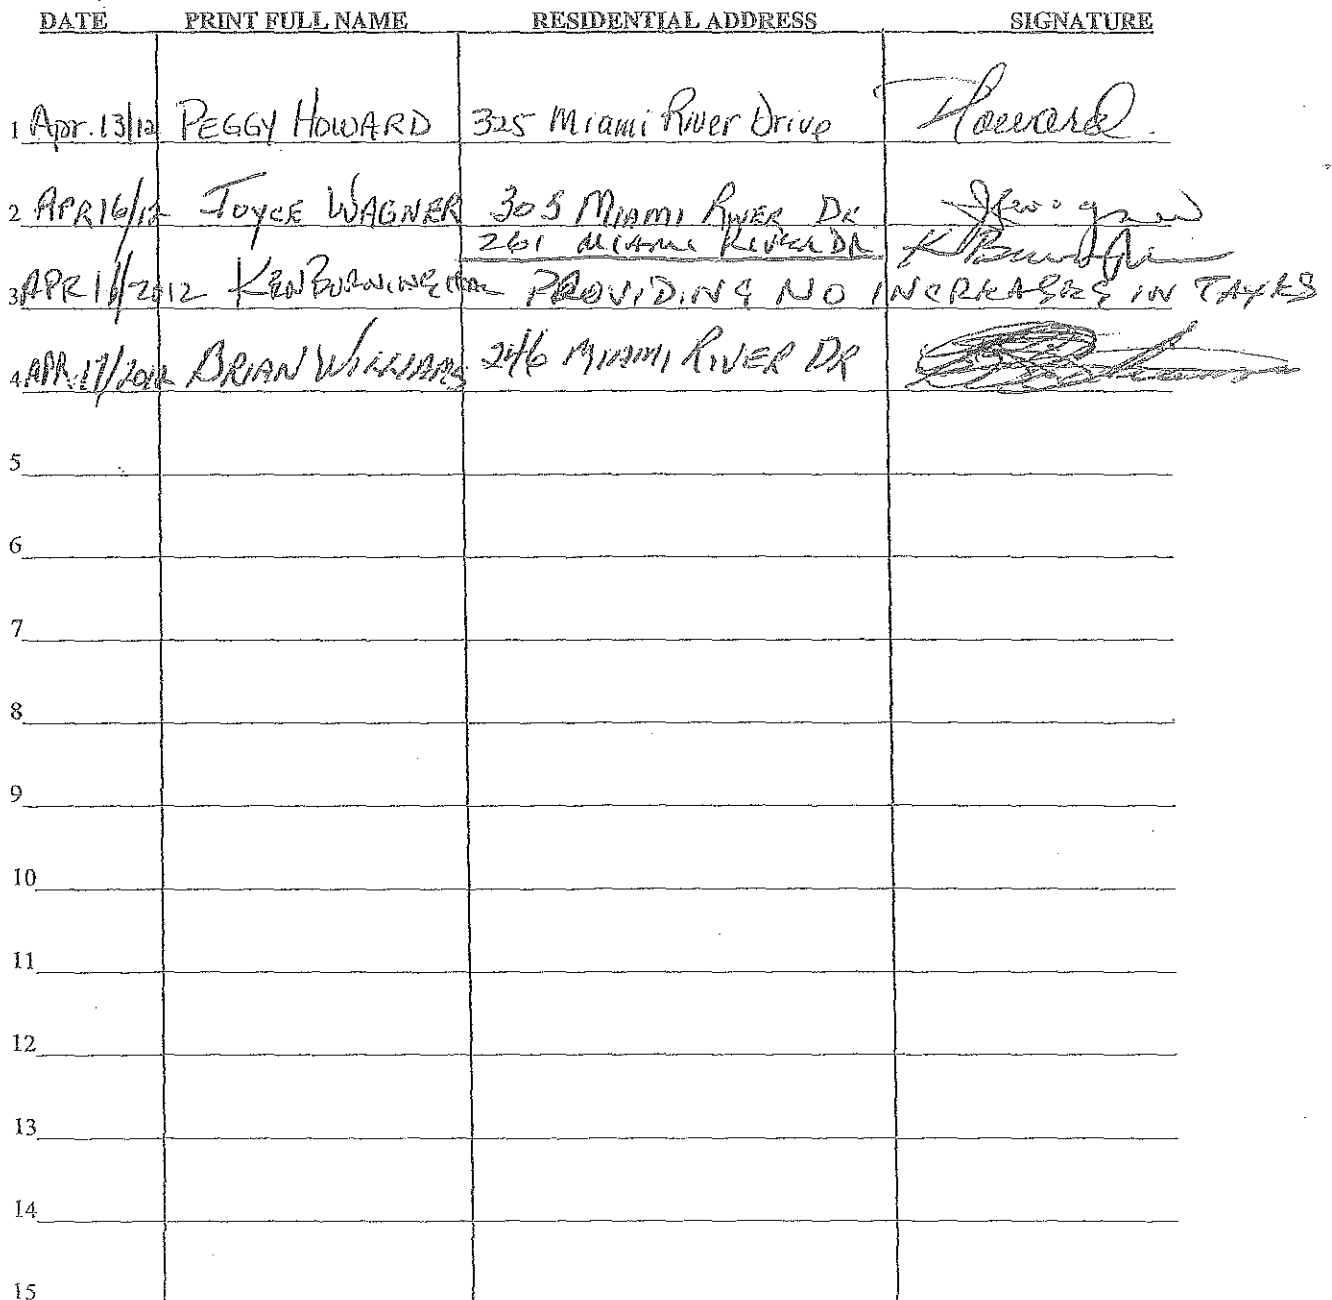 DATE PRINT FULL NAME RESIDENTIAL ADDRESS SIGNATURE
1 Apr. 13/12 PEGGY HOWARD 325 Miami River Drive Howard.
2 APR 16/12 JOYCE WAGNER 305 MIAMI RIVER DR
261 MIAMI RIVER DR
3 APR 16/2012 KEN PROVIDING NO INCREASES IN TAXES
4 APR. 17/2012 BRIAN WILLIAMS 246 MIAMI RIVER DR
5
6
7
8
9
10
11
12
13
14
15